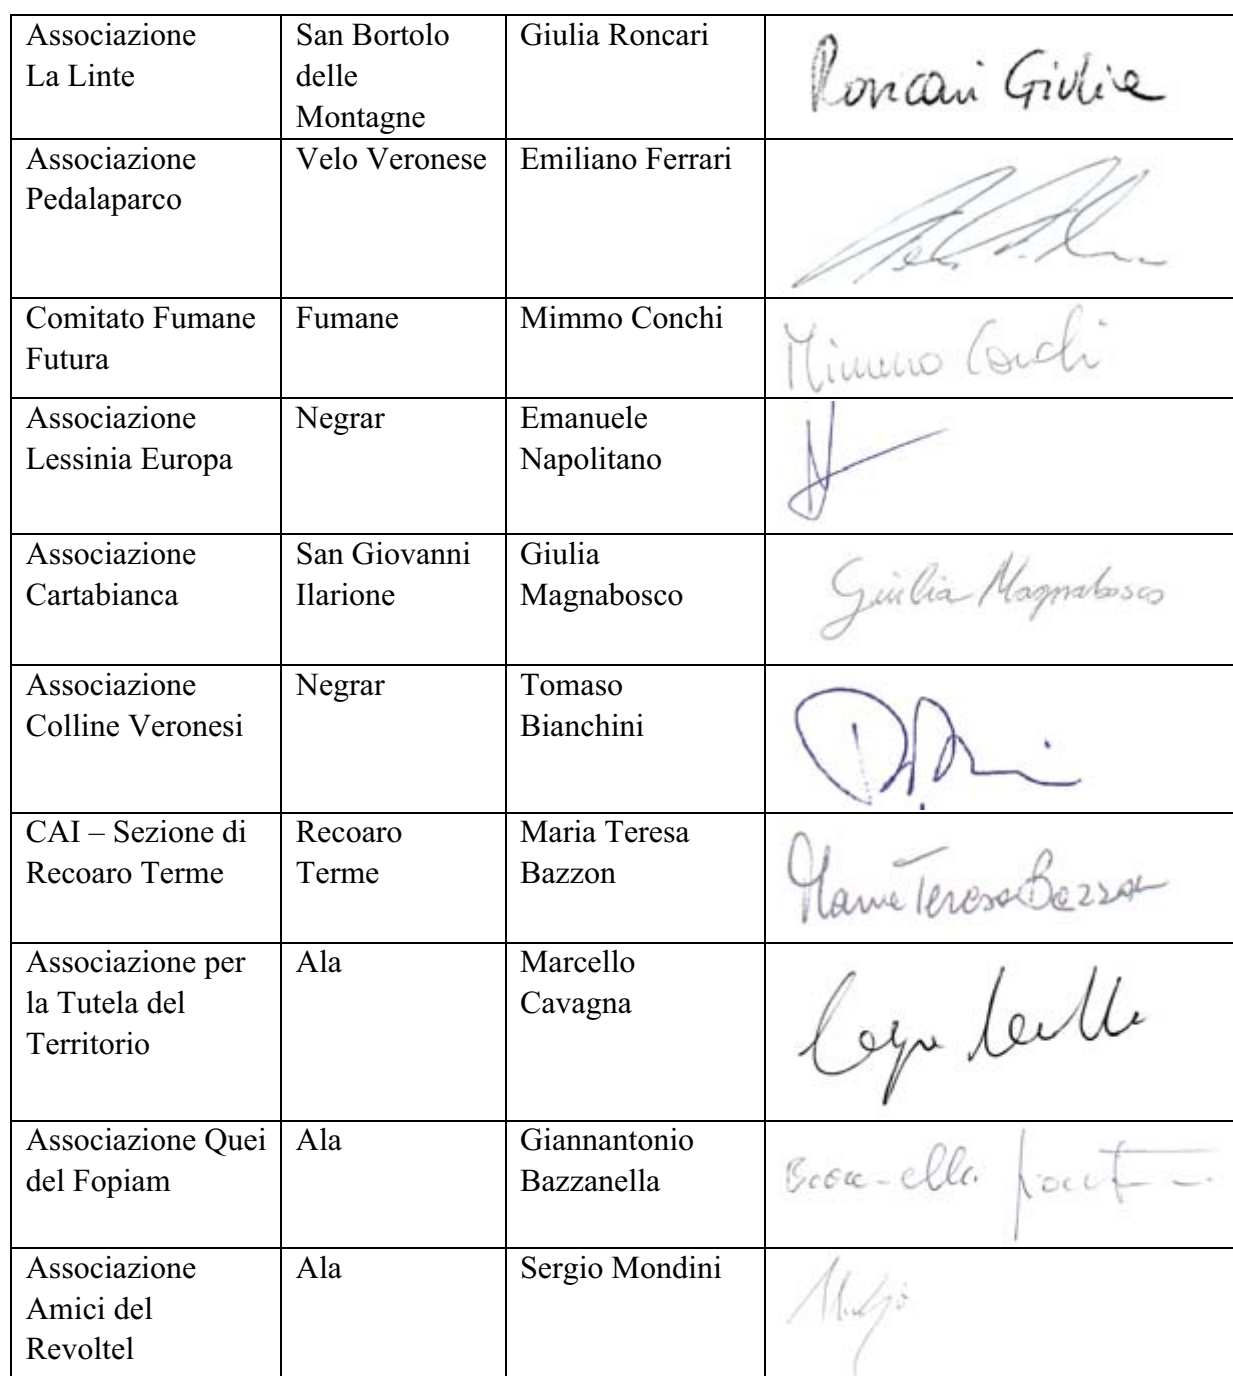 Associazione
La Linte
San Bortolo
delle
Montagne
Giulia Roncari
Roncari Giulia
Associazione
Pedalaparco
Velo Veronese
Emiliano Ferrari
Comitato Fumane
Futura
Fumane
Mimmo Conchi
Mimmo Conchi
Associazione
Lessinia Europa
Negrar
Emanuele
Napolitano
Associazione
Cartabianca
San Giovanni
Ilarione
Giulia
Magnabosco
Giulia Magnabosco
Associazione
Colline Veronesi
Negrar
Tomaso
Bianchini
CAI – Sezione di
Recoaro Terme
Recoaro
Terme
Maria Teresa
Bazzon
Maria Teresa Bazzon
Associazione per
la Tutela del
Territorio
Ala
Marcello
Cavagna
Associazione Quei
del Fopiam
Ala
Giannantonio
Bazzanella
Associazione
Amici del
Revoltel
Ala
Sergio Mondini